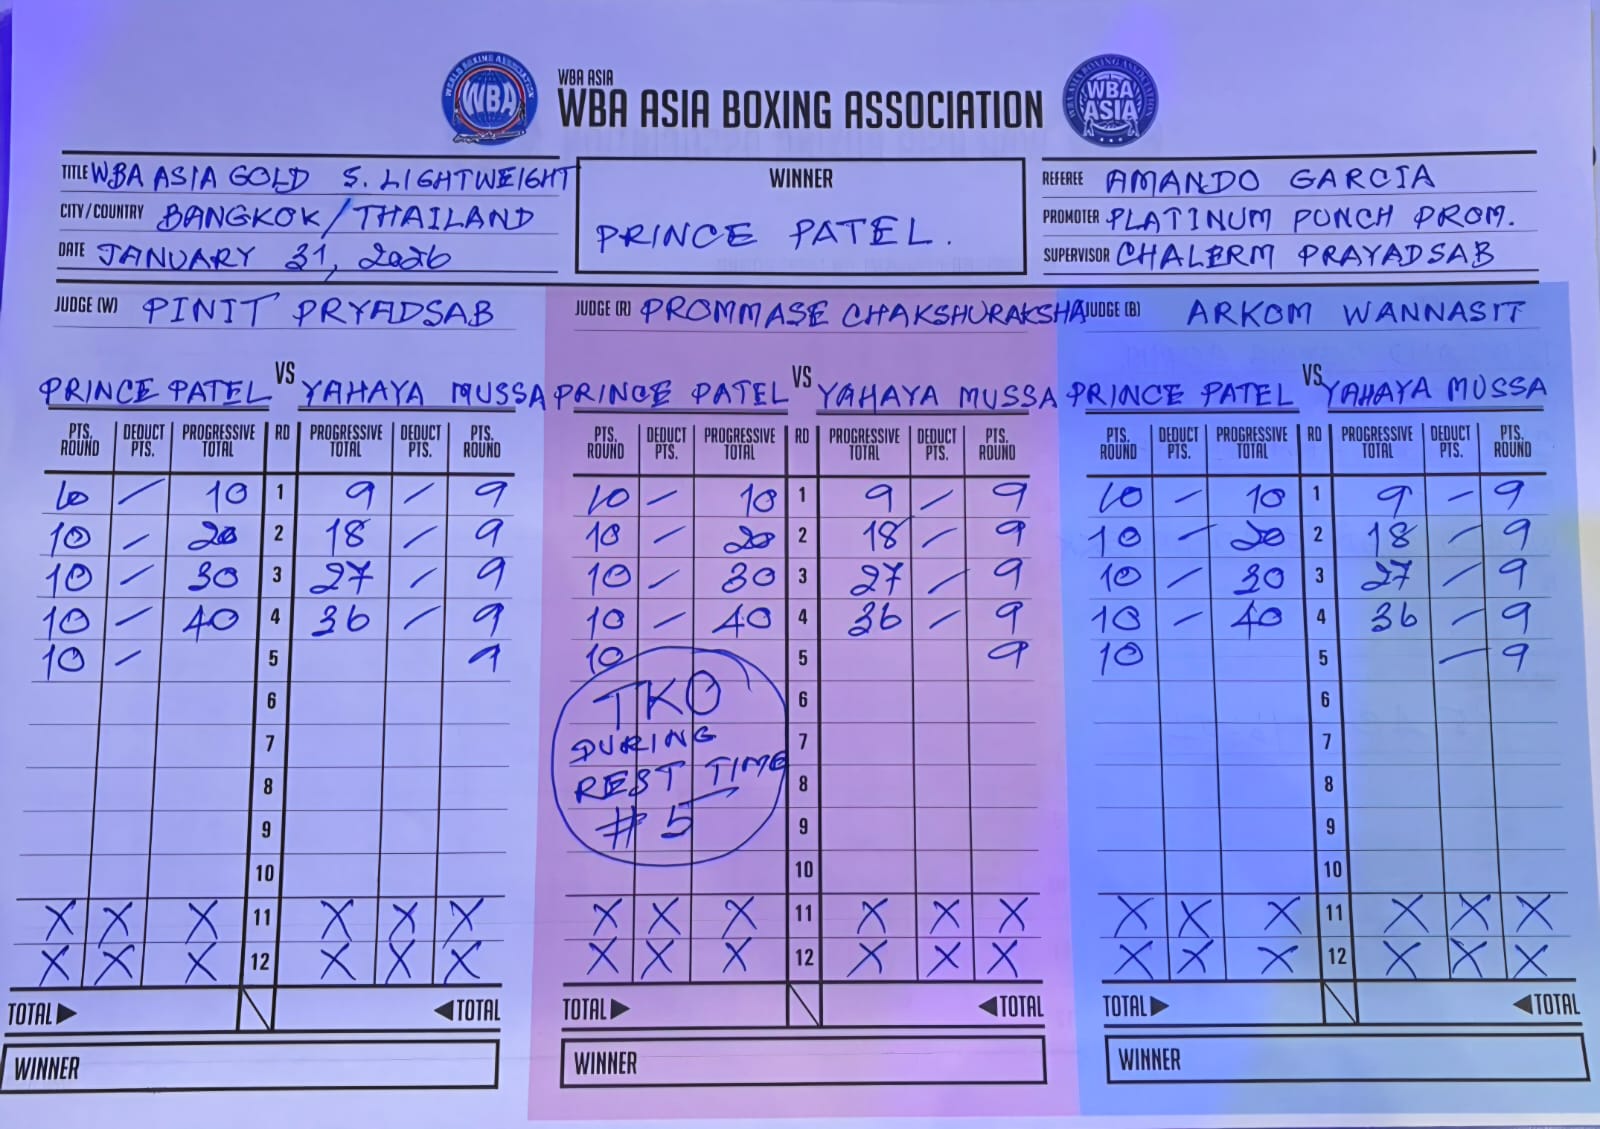 WORLD BOXING ASSOCIATION
WBA
WBA ASIA
WBA ASIA BOXING ASSOCIATION
WBA ASIA BOXING ASSOCIATION
WBA
ASIA
TITLE WBA ASIA GOLD S. LIGHTWEIGHT
CITY/COUNTRY BANGKOK/THAILAND
DATE JANUARY 31, 2026
WINNER
PRINCE PATEL.
REFEREE AMANDO GARCIA
PROMOTER PLATINUM PUNCH PROM.
SUPERVISOR CHALERM PRAYADSAB
JUDGE (W) PINIT PRYADSAB
PRINCE PATEL VS YAHAYA MUSSA
PTS. ROUND DEDUCT PTS. PROGRESSIVE TOTAL RD PROGRESSIVE TOTAL DEDUCT PTS. PTS. ROUND
10 – 10 1 9 – 9
10 – 20 2 18 – 9
10 – 30 3 27 – 9
10 – 40 4 36 – 9
10 – 5 9
6
7
8
9
10
X X X 11 X X X
X X X 12 X X X
TOTAL ▶ ◀ TOTAL
WINNER
JUDGE (R) PROMMASE CHAKSHURAKSHA
PRINCE PATEL VS YAHAYA MUSSA
PTS. ROUND DEDUCT PTS. PROGRESSIVE TOTAL RD PROGRESSIVE TOTAL DEDUCT PTS. PTS. ROUND
10 – 10 1 9 – 9
10 – 20 2 18 – 9
10 – 30 3 27 – 9
10 – 40 4 36 – 9
10 5 9
TKO 6
DURING 7
REST TIME 8
#5 9
10
X X X 11 X X X
X X X 12 X X X
TOTAL ▶ ◀ TOTAL
WINNER
JUDGE (B) ARKOM WANNASIT
PRINCE PATEL VS YAHAYA MUSSA
PTS. ROUND DEDUCT PTS. PROGRESSIVE TOTAL RD PROGRESSIVE TOTAL DEDUCT PTS. PTS. ROUND
10 – 10 1 9 – 9
10 – 20 2 18 – 9
10 – 30 3 27 – 9
10 – 40 4 36 – 9
10 5 – 9
6
7
8
9
10
X X X 11 X X X
X X X 12 X X X
TOTAL ▶ ◀ TOTAL
WINNER